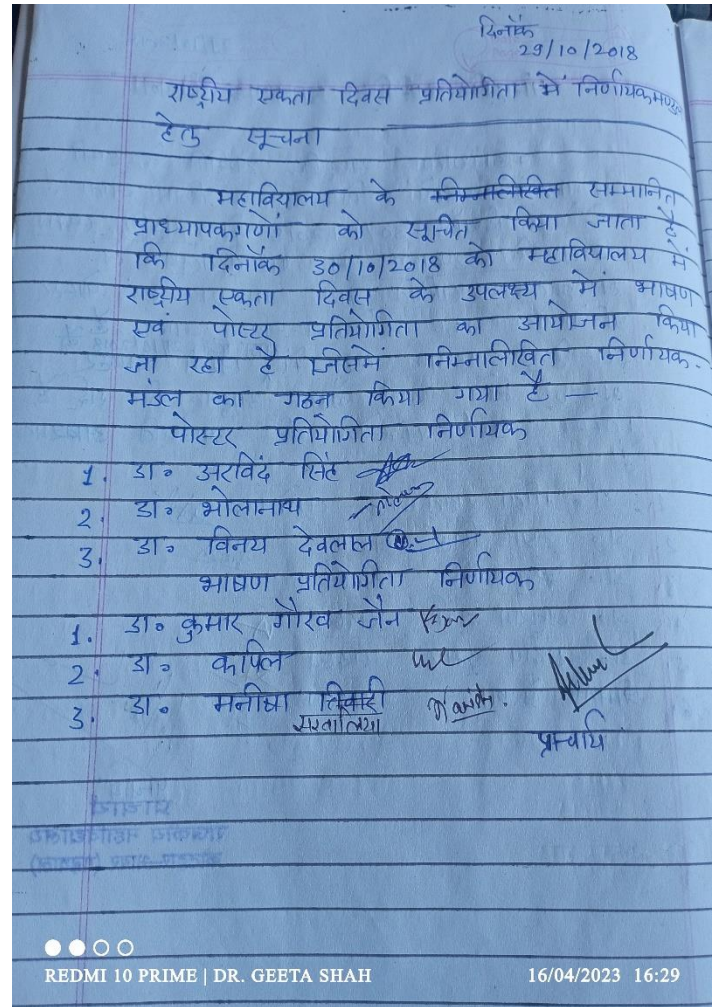 दिनाँक
29/10/2018
राष्ट्रीय एकता दिवस प्रतियोगिता में निर्णायकमण्डल
हेतु सूचना
महाविद्यालय के निम्नलिखित सम्मानित
प्राध्यापकगणों को सूचित किया जाता है
कि दिनाँक 30/10/2018 को महाविद्यालय में
राष्ट्रीय एकता दिवस के उपलक्ष्य में भाषण
एवं पोस्टर प्रतियोगिता का आयोजन किया
जा रहा है जिसमें निम्नलिखित निर्णायक-
मंडल का गठन किया गया है —
पोस्टर प्रतियोगिता निर्णायक
1. डा० अरविंद सिंह
2. डा० भोलानाथ
3. डा० विनय देवलाल
भाषण प्रतियोगिता निर्णायक
1. डा० कुमार गौरव जैन
2. डा० कपिल
3. डा० मनीषा तिवारी
प्राचार्य
REDMI 10 PRIME | DR. GEETA SHAH 16/04/2023 16:29